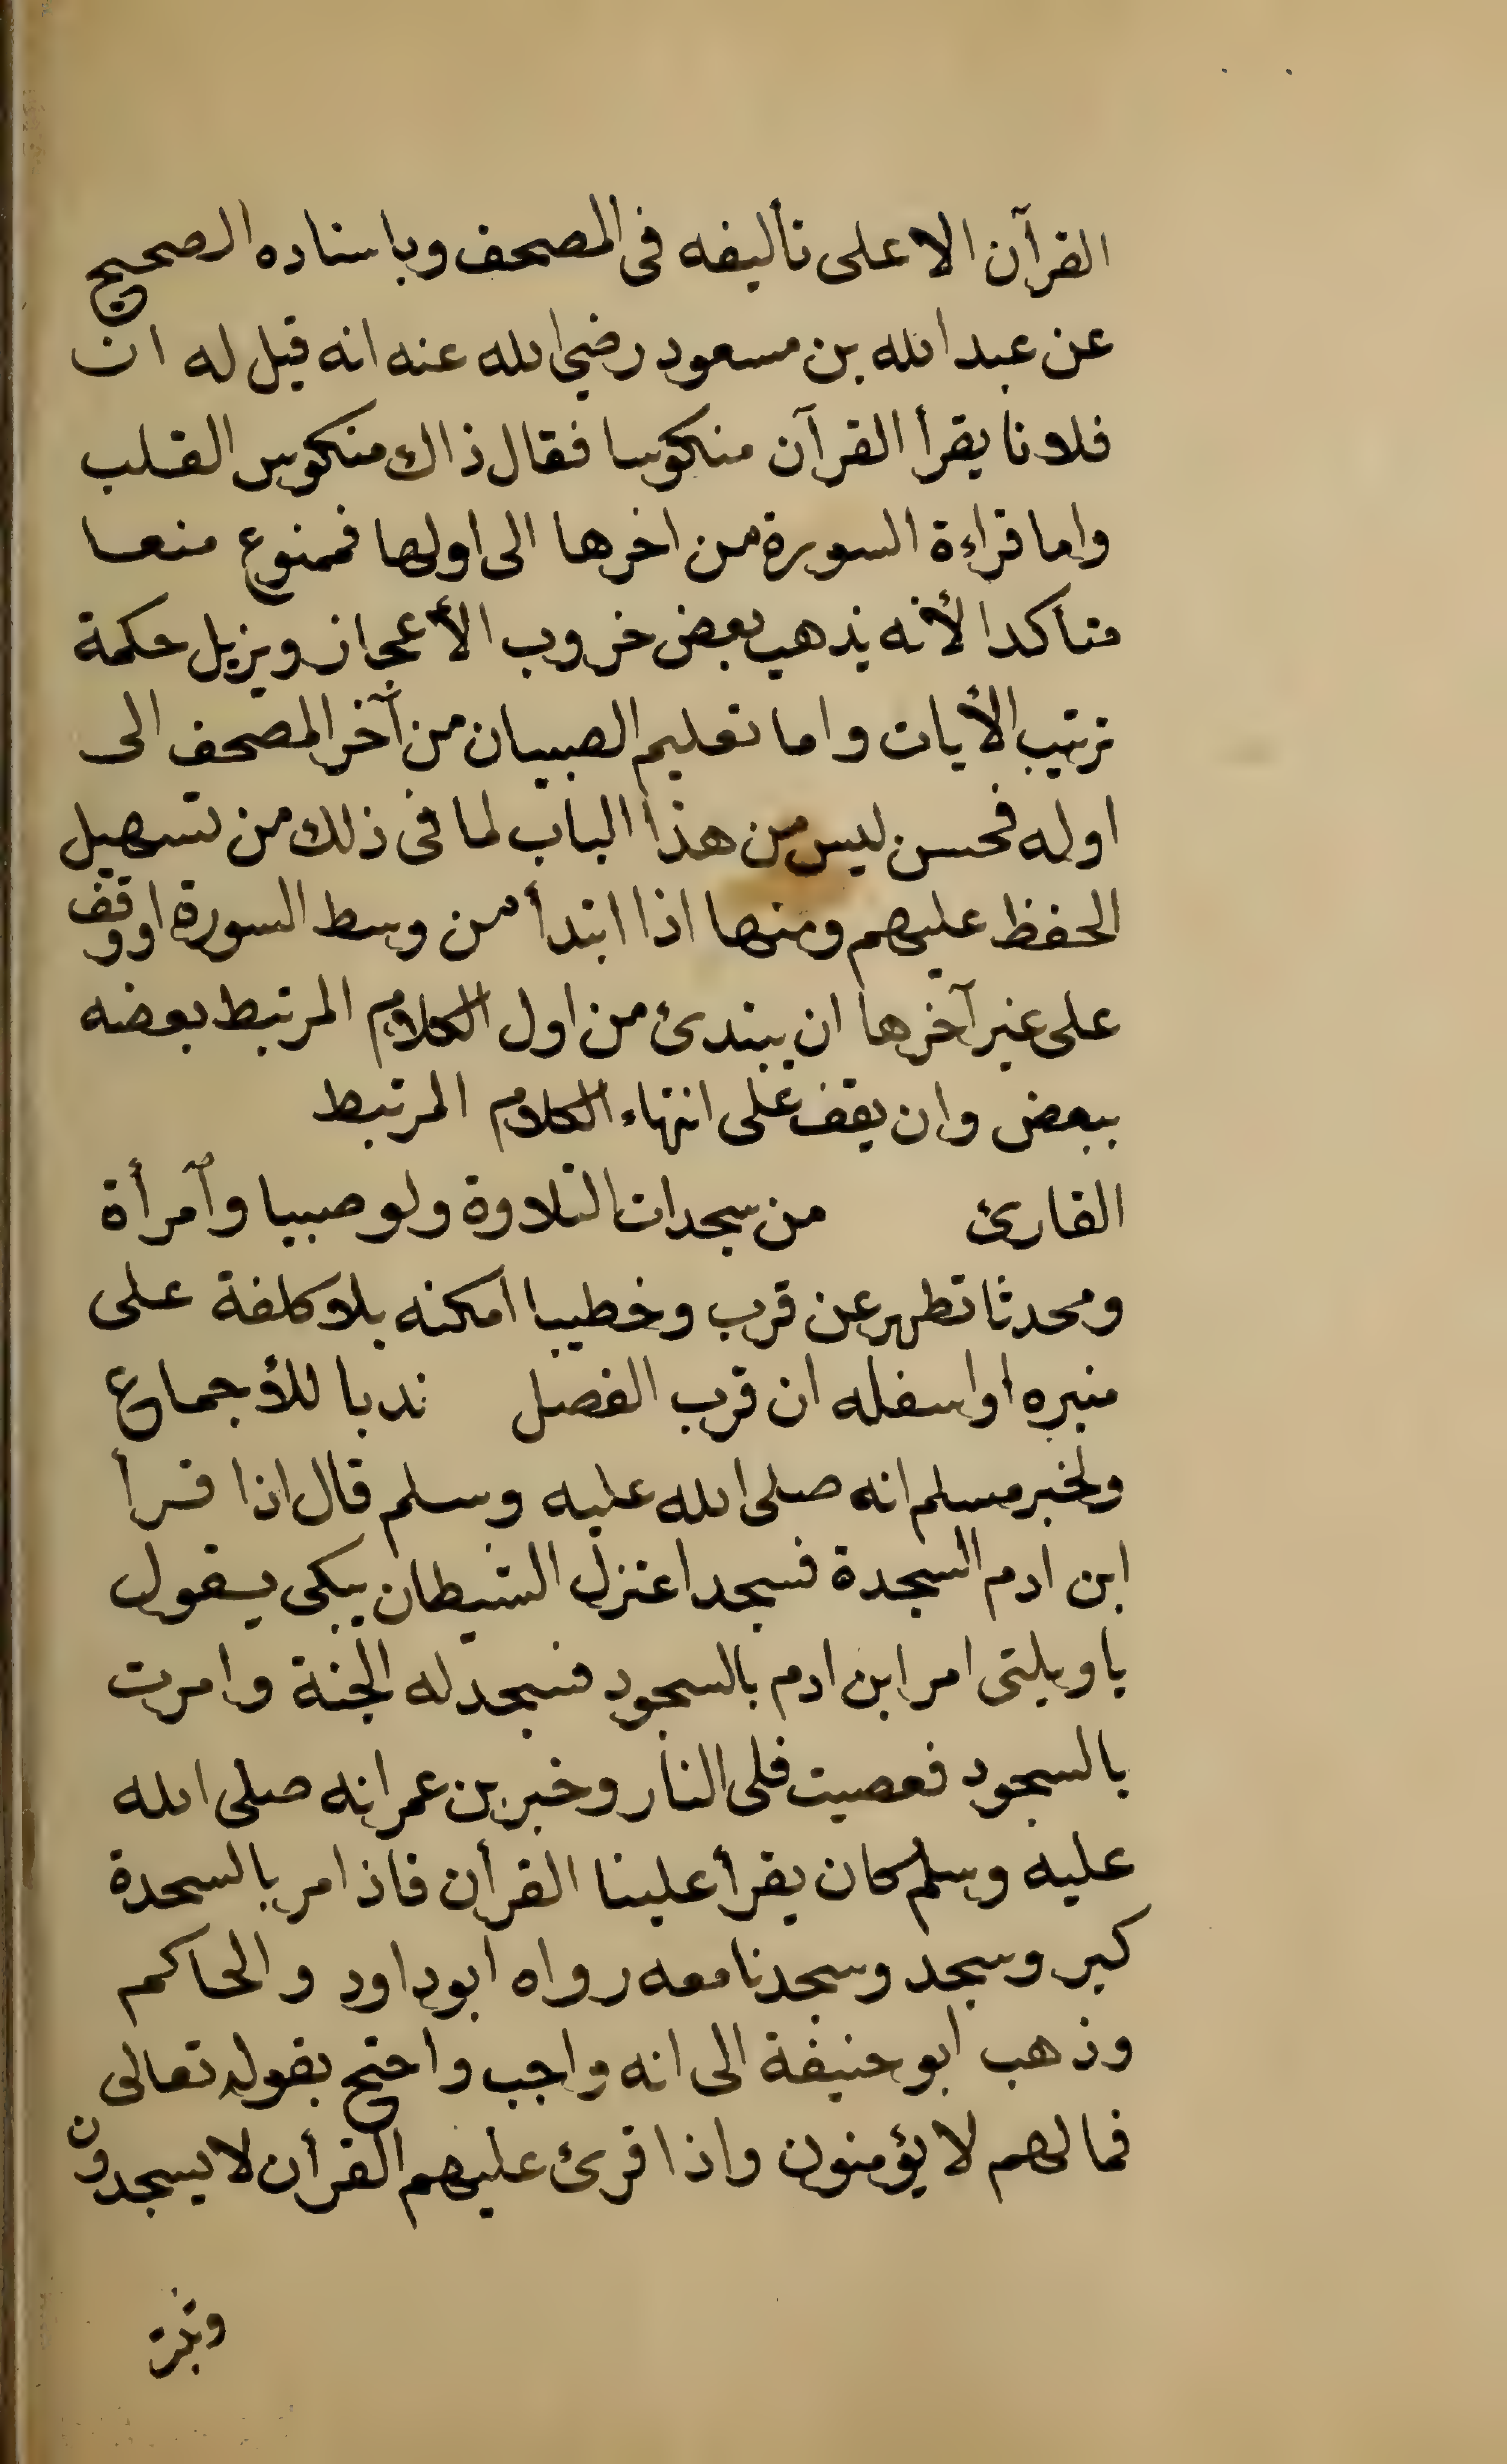 القرآن الا على تأليفه فى المصحف وباسناده الصحيح
عن عبد الله بن مسعود رضي الله عنه انه قيل له ان
فلانا يقرأ القرآن منكوسا فقال ذاك منكوس القلب
واما قراءة السورة من اخرها الى اولها فممنوع منعا
متأكدا لأنه يذهب بعض ضروب الأعجاز ويزيل حكمة
ترتيب الأيات واما تعليم الصبيان من آخر المصحف الى
اوله فحسن ليس من هذا الباب لما فى ذلك من تسهيل
الحفظ عليهم ومنها اذا ابتدأ من وسط السورة او وقف
على غير آخرها ان يبتدئ من اول الكلام المرتبط بعضه
ببعض وان يقف على انتهاء الكلام المرتبط
القارئ من سجدات التلاوة ولو صبيا وأمرأة
ومحدثا تطهر عن قرب وخطيبا امكنه بلا كلفة على
منبره او اسفله ان قرب الفصل ندبا للأجماع
ولخبر مسلم انه صلى الله عليه وسلم قال اذا قرأ
ابن ادم السجدة فسجد اعتزل الشيطان يبكى يقول
يا ويلتى امر ابن ادم بالسجود فسجد له الجنة وامرت
بالسجود فعصيت فلى النار وخبر بن عمر انه صلى الله
عليه وسلم كان يقرأ علينا القرأن فاذ امر بالسجدة
كبر وسجد وسجدنا معه رواه ابو داود والحاكم
وذهب ابو حنيفة الى انه واجب واحتج بقوله تعالى
فمالهم لا يؤمنون واذا قرئ عليهم القرأن لا يسجدون